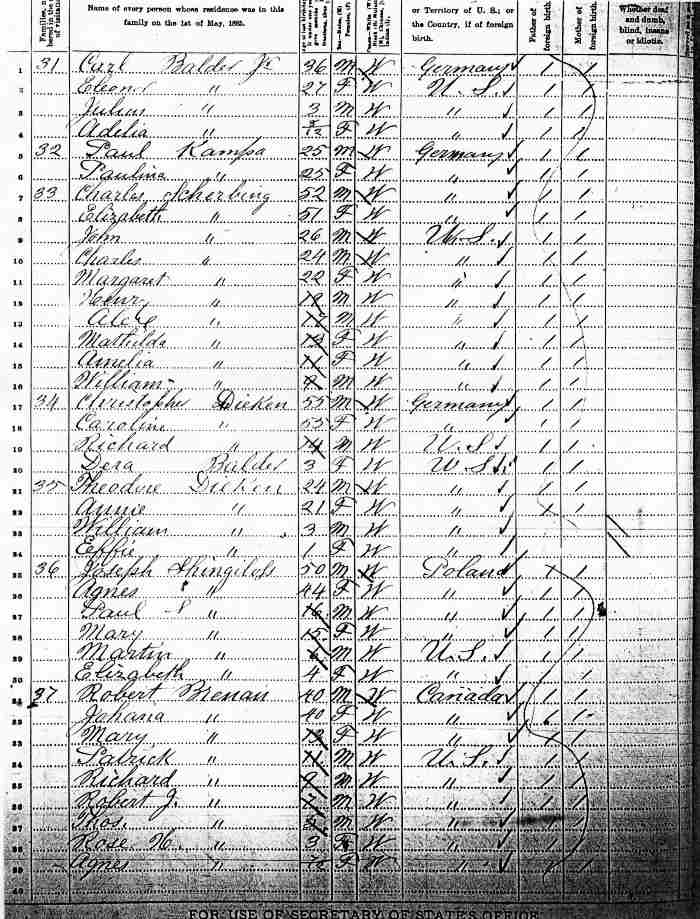 Name of every person whose residence was in this family on the 1st of May, 1895.
or Territory of U. S.; or the Country, if of foreign birth.
Father of foreign birth.
Mother of foreign birth.
Whether deaf and dumb, blind, insane or idiotic.
1 31 Carl Balder Jr 36 M W Germany / /
2 " 27 F W U. S. / /
3 Julius " 3 M W " / /
4 Adelia " F W " / /
5 32 Paul Kampa 25 M W Germany / /
6 Pauline " 25 F W " / /
7 33 Charles Scherbing 52 M W " / /
8 Elizabeth " 51 F W " / /
9 John " 26 M W U. S. / /
10 Charles " 24 M W " / /
11 Margaret " 22 F W " / /
12 Henry " M W " / /
13 " M W " / /
14 Mathilda " F W " / /
15 Amelia " 11 F W " / /
16 William " M W " / /
17 34 Christopher Dieken 55 M W Germany / /
18 Caroline " 55 F W " / /
19 Richard " 14 M W U. S. / /
20 Dora Balder 3 F W U. S. / /
21 35 Theodore Dieken 24 M W " / /
22 Annie " 21 F W " / /
23 William " 3 M W " / /
24 Effie " 1 F W " / /
25 36 Joseph 50 M W Poland / /
26 Agnes " 44 F W " / /
27 Paul " 16 M W " / /
28 Mary " 15 F W " / /
29 Martin " M W U. S. / /
30 Elizabeth " 4 F W " / /
31 37 Robert Brenan 40 M W Canada / /
32 Johana " 40 F W " / /
33 Mary " F W " / /
34 Patrick " 11 M W U. S. / /
35 Richard " 9 M W " / /
36 Robert J. " 7 M W " / /
37 Thos. " M W " / /
38 Rose H. " 3 F W " / /
39 Agnes " F W " / /
40
FOR USE OF SECRETARY OF STATE'S OFFICE